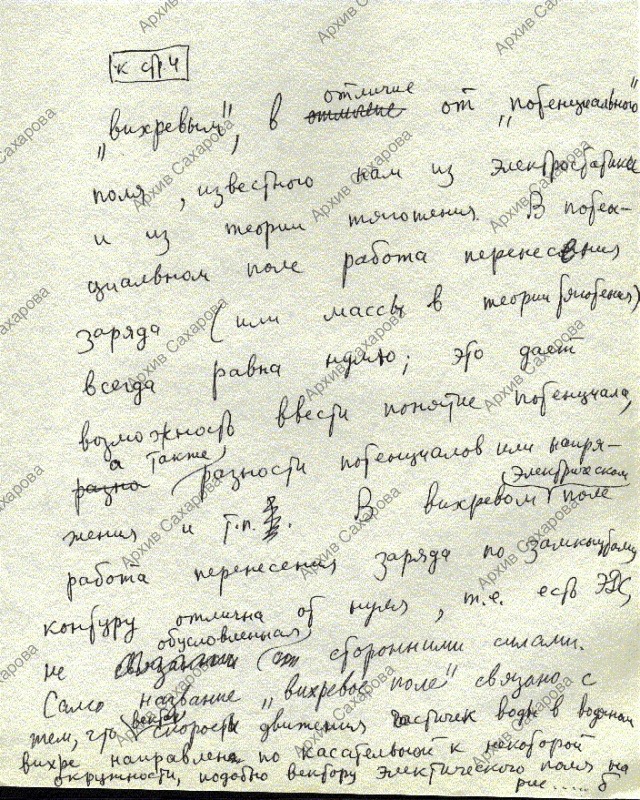 к стр. 4
"вихревым", в отличие от "потенциального"
поля, известного нам из электростатики
и из теории тяготения. В потен-
циальном поле работа перенесения
заряда (или массы в теории тяготения)
всегда равна нулю; это дает
возможность ввести понятие потенциала,
а также разности потенциалов или напря-
жения и т.п. В вихревом электрическом поле
работа перенесения заряда по замкнутому
контуру отлична от нуля, т.е. есть ЭДС,
не обусловленная сторонними силами.
Само название "вихревое поле" связано с
тем, что вектор скорости движения частичек воды в водяном
вихре направлен по касательной к некоторой
окружности, подобно вектору электрического поля на
рис.....б
Архив Сахарова